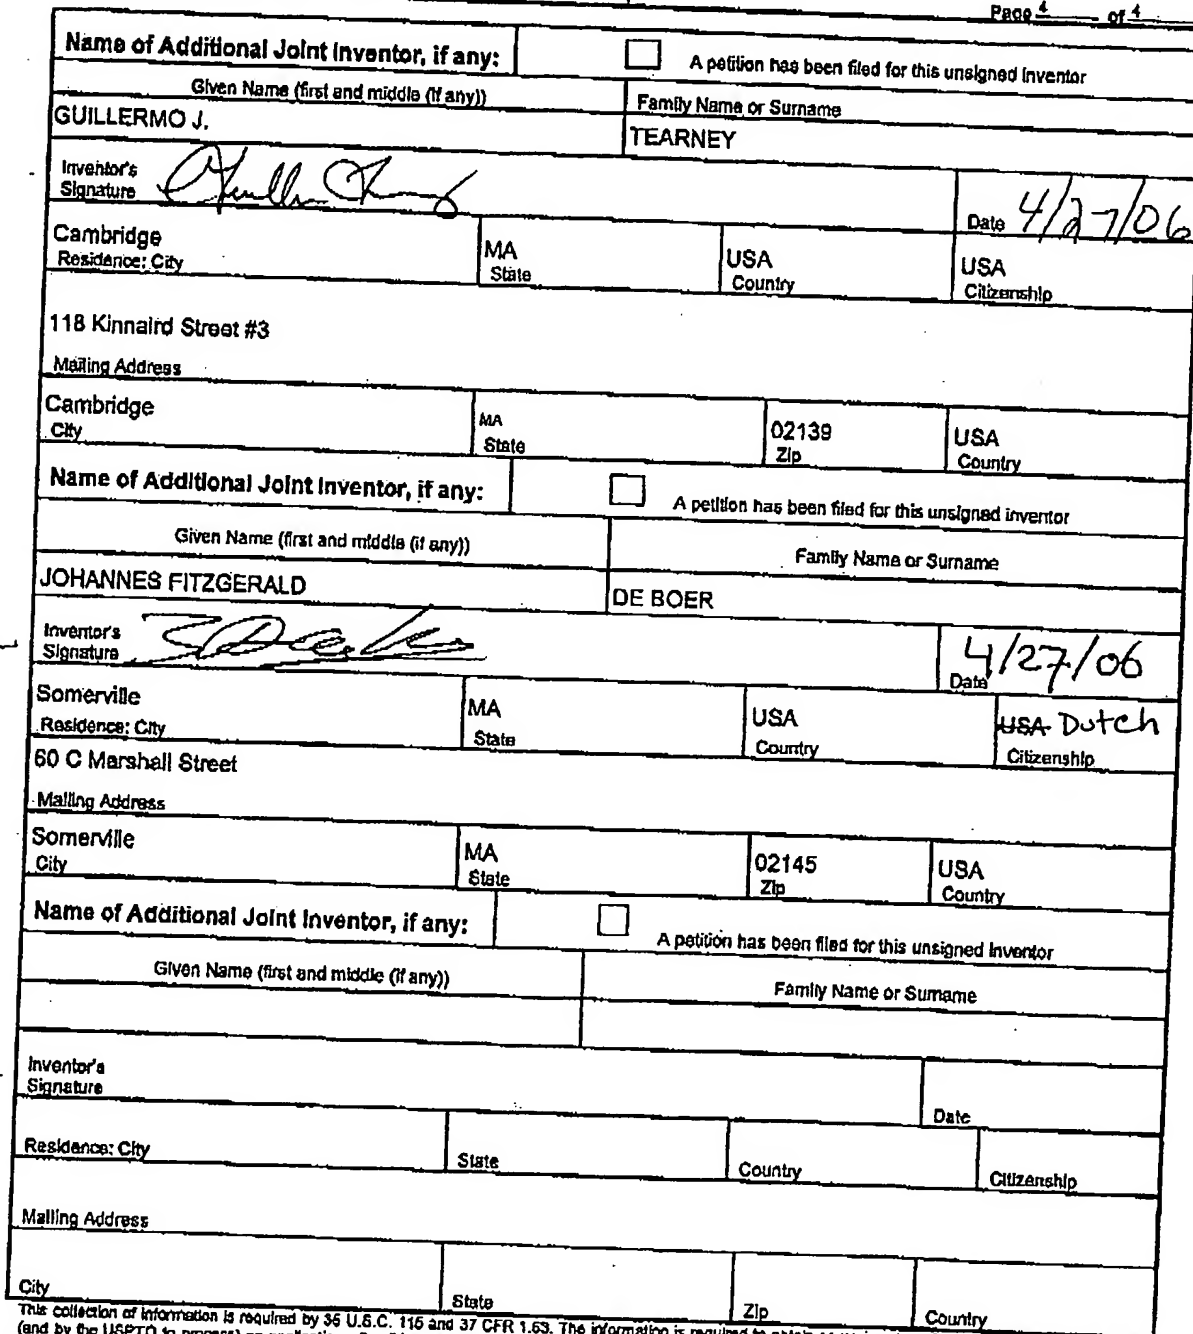 Page 4 of 4
Name of Additional Joint Inventor, if any: A petition has been filed for this unsigned inventor
Given Name (first and middle (if any)) Family Name or Surname
GUILLERMO J. TEARNEY
Inventor's
Signature Date 4/27/06
Cambridge MA USA USA
Residence: City State Country Citizenship
118 Kinnaird Street #3
Mailing Address
Cambridge MA 02139 USA
City State Zip Country
Name of Additional Joint Inventor, if any: A petition has been filed for this unsigned inventor
Given Name (first and middle (if any)) Family Name or Surname
JOHANNES FITZGERALD DE BOER
Inventor's
Signature Date 4/27/06
Somerville MA USA USA Dutch
Residence: City State Country Citizenship
60 C Marshall Street
Mailing Address
Somerville MA 02145 USA
City State Zip Country
Name of Additional Joint Inventor, if any: A petition has been filed for this unsigned inventor
Given Name (first and middle (if any)) Family Name or Surname
Inventor's
Signature Date
Residence: City State Country Citizenship
Mailing Address
City State Zip Country
This collection of information is required by 35 U.S.C. 115 and 37 CFR 1.63. The information is required to obtain
(and by the USPTO to process)